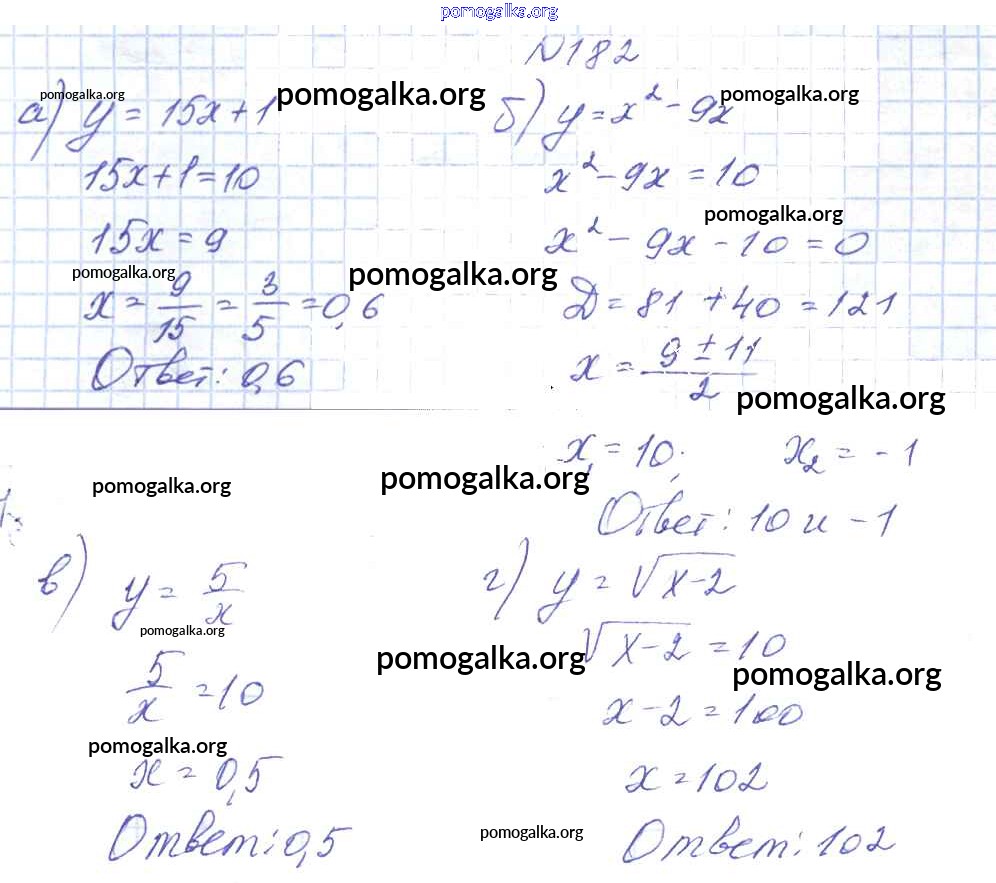 pomogalka.org
N182
pomogalka.org
а) y = 15x + 1
pomogalka.org
15x + 1 = 10
15x = 9
pomogalka.org
pomogalka.org
x = 9/15 = 3/5 = 0,6
Ответ: 0,6
pomogalka.org
б) y = x² - 9x
x² - 9x = 10
pomogalka.org
x² - 9x - 10 = 0
Д = 81 + 40 = 121
x = (9 ± 11)/2
pomogalka.org
x₁ = 10; x₂ = -1
Ответ: 10 и -1
pomogalka.org
pomogalka.org
в) y = 5/x
pomogalka.org
5/x = 10
pomogalka.org
x = 0,5
Ответ: 0,5
г) y = √x-2
pomogalka.org
√x-2 = 10
pomogalka.org
x - 2 = 100
x = 102
pomogalka.org
Ответ: 102